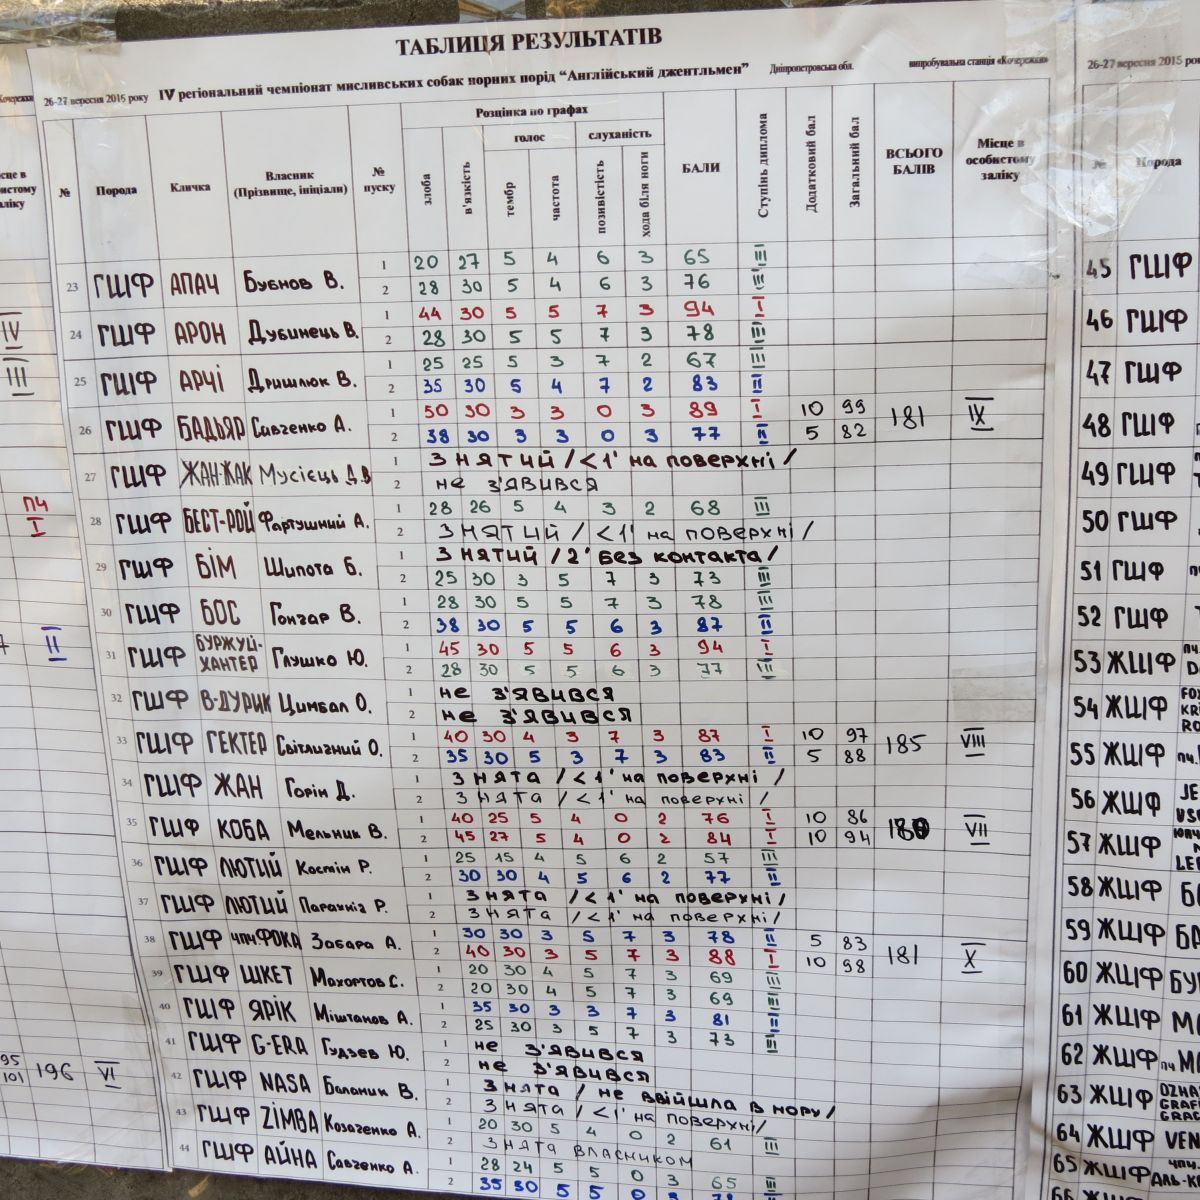 ТАБЛИЦЯ РЕЗУЛЬТАТІВ
26-27 вересня 2015 року IV регіональний чемпіонат мисливських собак норних порід "Англійський джентльмен" Дніпропетровська обл. випробувальна станція «Кочережки»
№ Порода Кличка Власник (Прізвище, ініціали) № пуску Розцінка по графах злоба в'язкість голос тембр частота слуханість позивістість хода біля ноги БАЛИ Ступінь диплома Додатковий бал Загальний бал ВСЬОГО БАЛІВ Місце в особистому заліку
23 ГШФ АПАЧ Бубнов В. 1 20 27 5 4 6 3 65 III
2 28 30 5 4 6 3 76 III
24 ГШФ АРОН Дубинець В. 1 44 30 5 5 7 3 94 I
2 28 30 5 5 7 3 78 III
25 ГШФ АРЧІ Дришлюк В. 1 25 25 5 3 7 2 67 III
2 35 30 5 4 7 2 83 II
26 ГШФ БАДЬЯР Савченко А. 1 50 30 3 3 0 3 89 I 10 99 181 IX
2 38 30 3 3 0 3 77 II 5 82
27 ГШФ ЖАН-ЖАК Мусієць Д.В 1 знятий /<1' на поверхні/
2 не з'явився
28 ГШФ БЕСТ-РОЙ Фартушний А. 1 28 26 5 4 3 2 68 III
2 знятий /<1' на поверхні/
29 ГШФ БІМ Шипота Б. 1 знятий /2' без контакта/
2 25 30 3 5 7 3 73 III
30 ГШФ БОС Гончар В. 1 28 30 5 5 7 3 78 III
2 38 30 5 5 6 3 87 II
31 ГШФ БУРЖУЙ-ХАНТЕР Глушко Ю. 1 45 30 5 5 6 3 94 I
2 28 30 5 5 6 3 77 III
32 ГШФ В-ДУРИК Цимбал О. 1 не з'явився
2 не з'явився
33 ГШФ ГЕКТЕР Світличний О. 1 40 30 4 3 7 3 87 I 10 97 185 VIII
2 35 30 5 3 7 3 83 II 5 88
34 ГШФ ЖАН Горін Д. 1 знята /<1' на поверхні/
2 знята /<1' на поверхні/
35 ГШФ КОБА Мельник В. 1 40 25 5 4 0 2 76 I 10 86 VII
2 45 27 5 4 0 2 84 I 10 94
36 ГШФ ЛЮТИЙ Костін Р. 1 25 15 4 5 6 2 57 III
2 30 30 4 5 6 2 77 II
37 ГШФ ЛЮТИЙ Р. 1 знята /<1' на поверхні/
2 знята /<1' на поверхні/
38 ГШФ ФОКА Забара А. 1 30 30 3 5 7 3 78 II 5 83 181 X
2 40 30 3 5 7 3 88 I 10 98
39 ГШФ ШКЕТ Махортов С. 1 20 30 4 5 7 3 69 III
2 20 30 4 5 7 3 69 III
40 ГШФ ЯРІК Міштанов А. 1 35 30 3 3 7 3 81 II
2 25 30 3 5 7 3 73 III
41 ГШФ G-ERA Гудзев Ю. 1 не з'явився
2 не з'явився
42 ГШФ NASA Баланик В. 1 знята / не ввійшла в нору/
2 знята /<1' на поверхні/
43 ГШФ ZIMBA Козаченко А. 1 20 30 5 4 0 2 61 III
2 знята власником
44 ГШФ АЙНА Савченко А. 1 28 24 5 5 0 3 65 III
2 35 30 5 5 0 3 II
IV
III
ПЧ
I
II
95
101 196 VI
26-27 вересня 2015
№ Порода
45 ГШФ
46 ГШФ
47 ГШФ
48 ГШФ
49 ГШФ
50 ГШФ
51 ГШФ
52 ГШФ
53 ЖШФ
54 ЖШФ
55 ЖШФ
56 ЖШФ
57 ЖШФ
58 ЖШФ
59 ЖШФ
60 ЖШФ
61 ЖШФ
62 ЖШФ
63 ЖШФ
64 ЖШФ VEN
65 ЖШФ